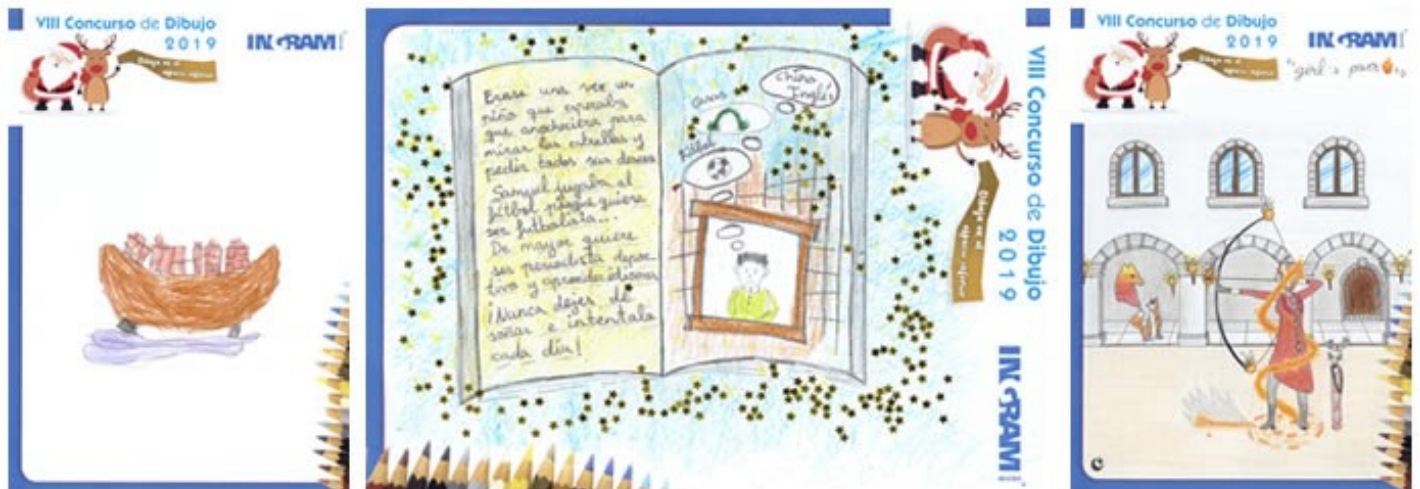 VIII Concurso de Dibujo
2019
INGRAM
Dibuja en el
espacio inferior
Erase una vez un
niño que esperaba
que anocheciera para
mirar las estrellas y
pedir todos sus deseos
Samuel jugaba al
fútbol porque quiere
ser futbolista...
De mayor quiere
ser periodista depor
tivo y aprender idiomas
¡Nunca dejes de
soñar e intentalo
cada día!
Chino
Inglés
Fútbol
VIII Concurso de Dibujo
2019
Dibuja en el
espacio inferior
INGRAM
VIII Concurso de Dibujo
2019
INGRAM
Dibuja en el
espacio inferior
"girl's power"